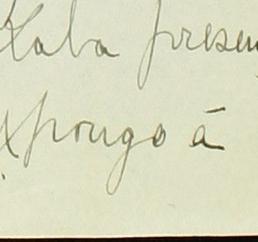 taba presen
xpongo á